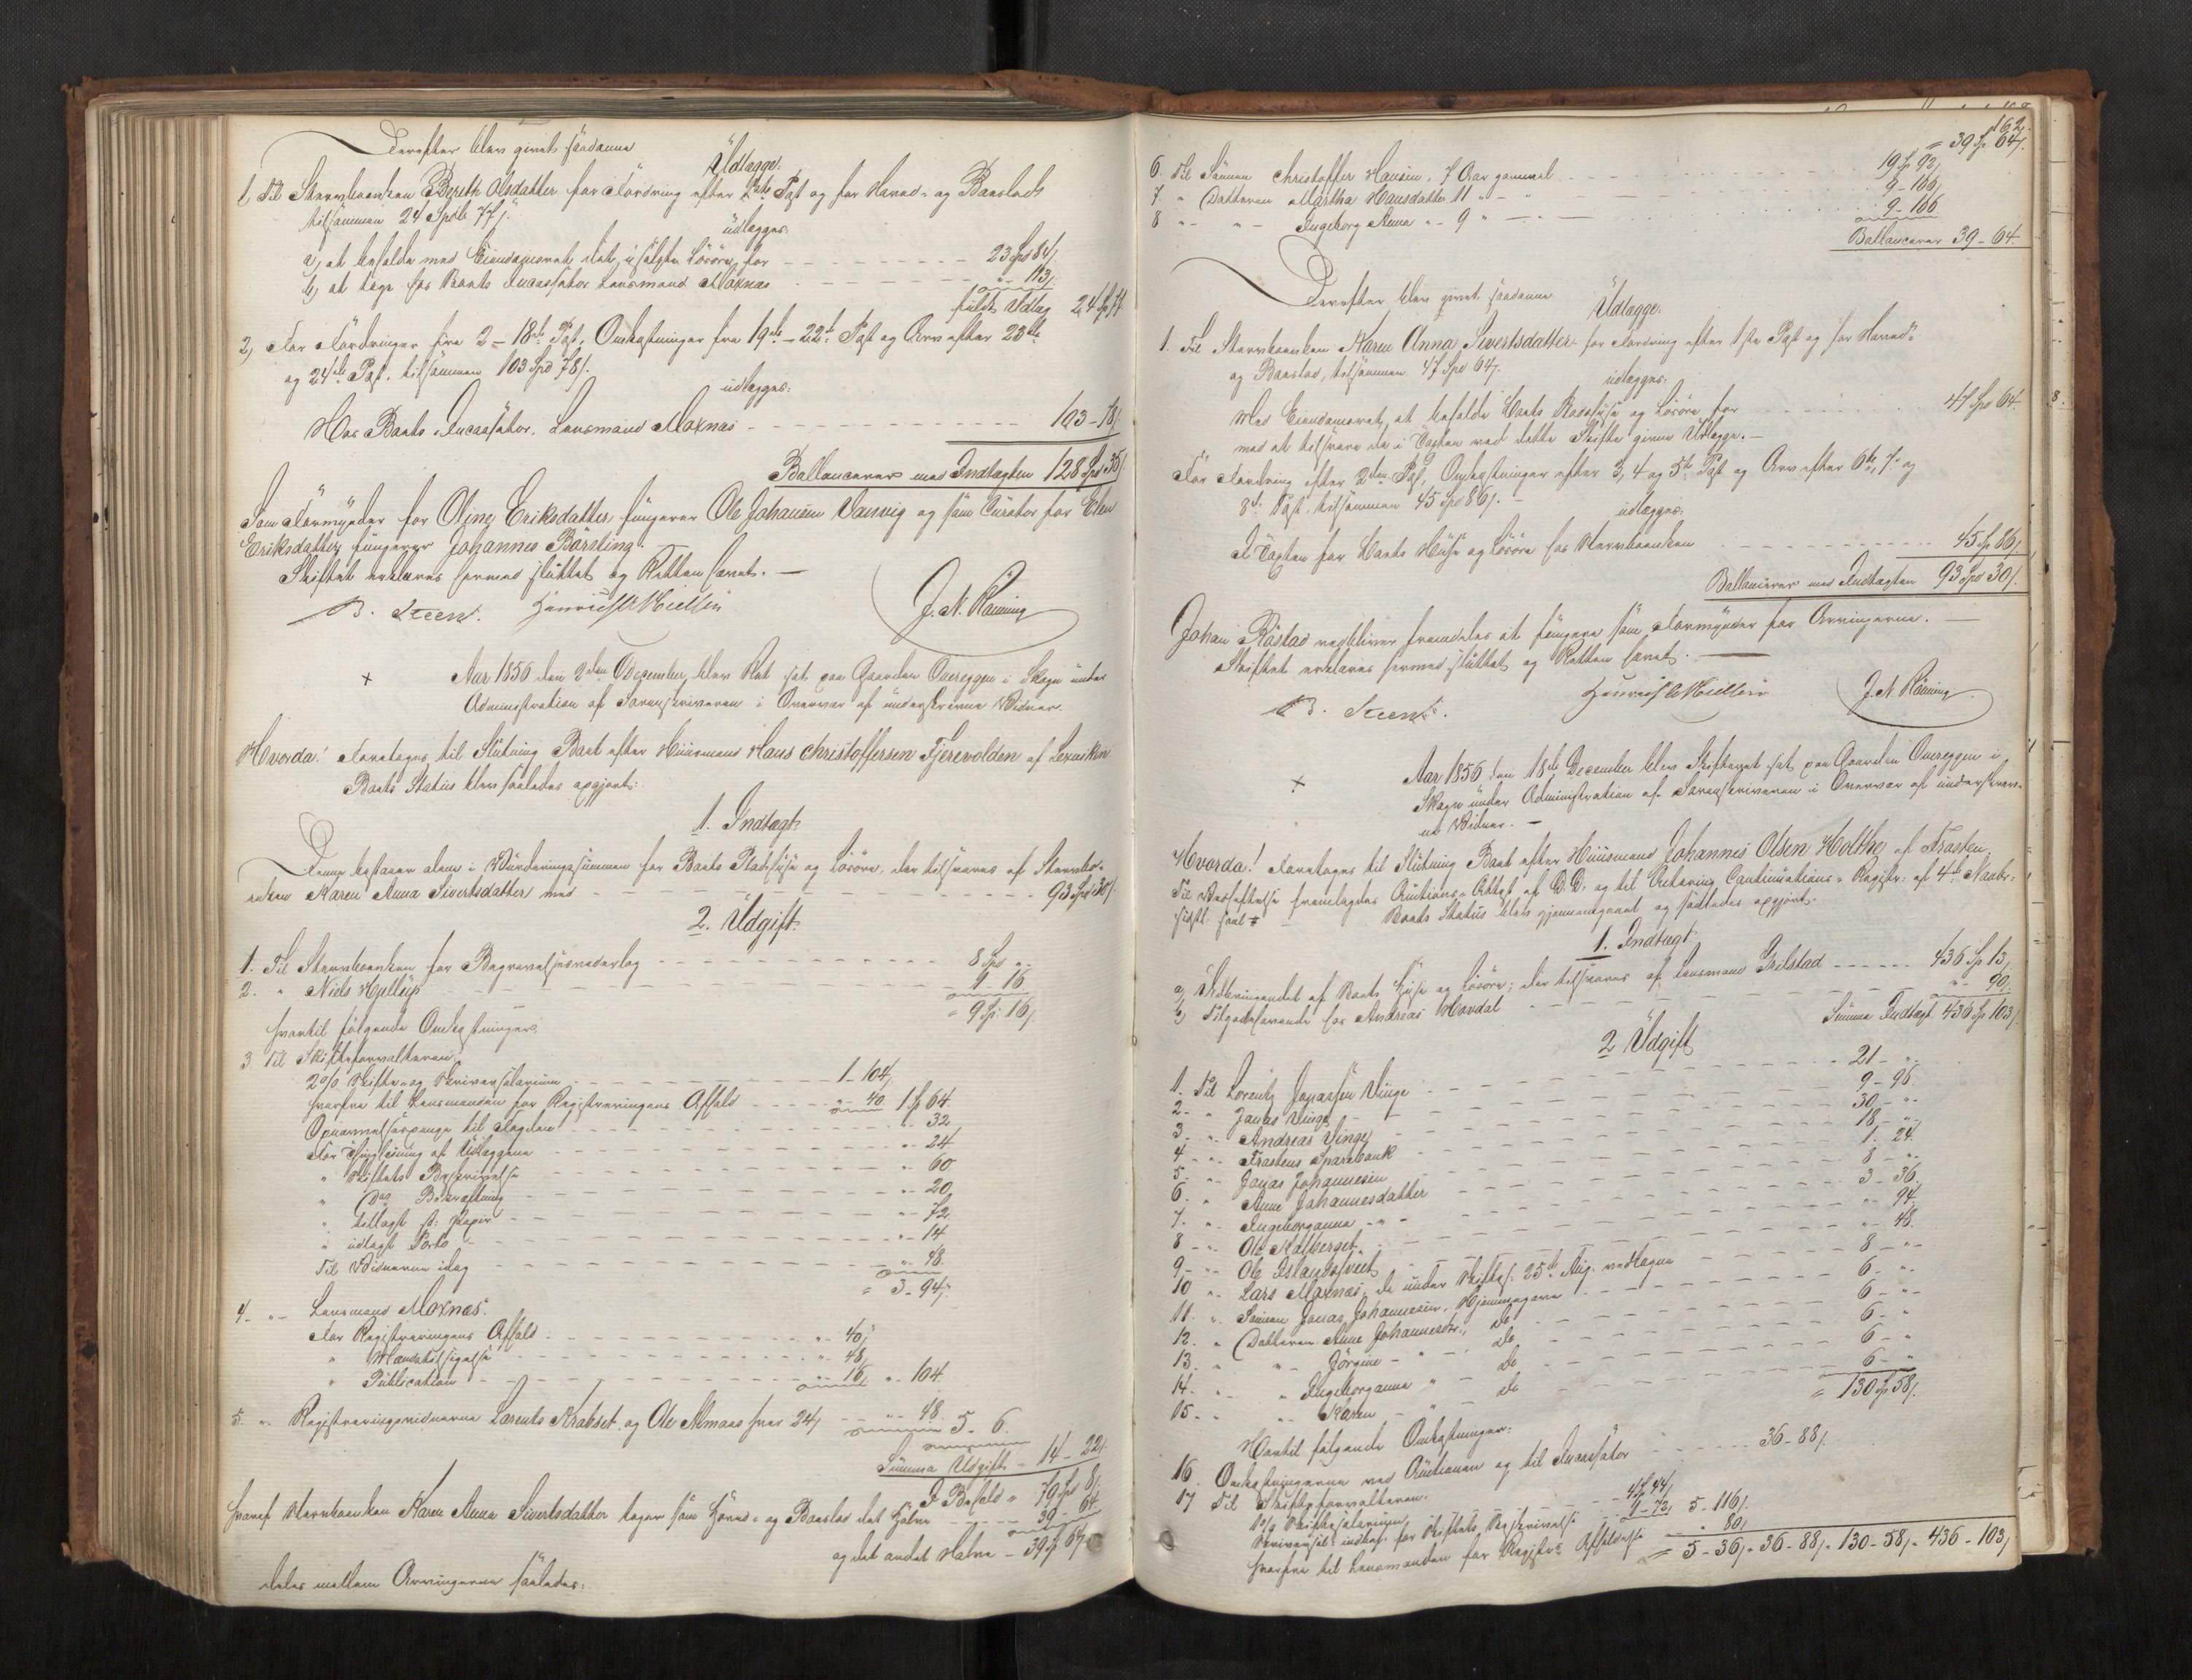 Derefter blev givet saadanne
Udlægge:
1, Til Stervboenken Bereth Olsdatter for Fordring efter 1ste Post og for Hoved- og Boeslods
tilsammen 24 Spdlr 77 s.
udlægges:
a, at beholde med Eiendomsret det usolgte Løsøre for 23 Spd 84
b, at tage hos Boets Incassator Lensmand Moxnæs " 113
fuldt Udlæg 24 Sp 77
2, For Fordringer fra 2 – 18de Post, Omkostninger fra 19de – 22de Post og Arv efter 23de
og 24de Post, tilsammen 103 Spd 78 s.
udlægges:
Hos Boets Incassator, Lensmand Moxnæs 103 – 78
Ballancerer med Indtægten 128 Spd 35
Som Formynder for Oline Eriksdatter fungerer Ole Johansen Vansvig og som Curator for Elen
Eriksdatter fungerer Johannes Børsting.
Skiftet erklæres hermed sluttet og Retten hævet. —
B. Steen. J. N. Rønning
x Aar 1856 den 2den December, blev Ret sat paa Gaarden Overeggen i Skogn under
Administration af Sorenskriveren i Overvær af underskrevne Vidner.
Hvorda! Foretoges til Slutning Boet efter Huusmand Hans Christoffersen Fjerevolden af Levviken
Boets Status blev saaledes opgjort:
1. Indtægt:
Denne bestaaer alene i Vurderingssummen for Boets Pladshuse og Løsøre, der tilsvares af Stervbo-
enken Karen Anna Sivertsdatter, med 93 Spd 30
2. Udgift.
1. Til Stervboenken for Begravelsesvederlag 8 Spd "
2. " Niels Hjellup 1 – 16
= 9 Sp 16
hvortil følgende Omkostninger.
3. Til Skifteforvalteren
2 o/o Skifte- og Skriversalarium 1 – 104
hvorfra til Lensmanden for Registreringens Afhold " 40 1 Sp 64
Opvarmelsespenge til Fogden " 32
For Thinglæsning af Udlæggene " 24
" Skiftets Beskrivelse " 60
" Dos Bekræftning " 20
" tillagt st. Papir " 72
" udlagt Porto " 14
Til Vidnerne idag " 48
= 3 – 94
4. " Lensmand Moxnæs:
For Registreringens Afhold " 40
" Mændtilsigelse " 48
" Publication " 16 " 104
5. " Registreringsvidnerne Lorents Krabset og Ole Almaas hver 24 " 48
5 – 6
Summa Udgift 14 – 22
I Behold = 79 Spd 8
hvoraf Stervboenken Karen Anna Sivertsdatter tager som Hoved- og Boeslod det Halve 39 – 64
og det andet Halve 39 Sp 64
deles mellem Arvingerne saaledes:
162.
= 39 Sp 64
6. Til Sønnen Christoffer Hansen 7 Aar gammel 19 Sp 92
7 " Datteren Martha Hansdatter 11 " – " 9 – 106
8 " – " – Ingeborg Anna " – 9 " 9 – 106
Ballancerer 39 – 64
Derefter blev givet saadanne
Udlægge:
1. Til Stervboenken Karen Anna Sivertsdatter for Fordring efter 1ste Post og for Hoved-
og Boeslod, tilsammen 47 Spd 64
udlægges:
Med Eiendomsret at beholde Boets Pladshuse og Løsøre for 47 Spd 64
mod at tilsvare de i Taxten ved dette Skifte givne Udlægge. —
For Fordring efter 2den Post, Omkostninger efter 3, 4 og 5te Post og Arv efter 6te, 7 og
8de Post, tilsammen 45 Spd 86
udlægges:
I Taxten for Boets Huse og Løsøre hos Stervboenken 45 Sp 86
Ballancerer med Indtægten 93 Spd 30
Johan Røstad vedbliver fremdeles at fungere som Formynder for Arvingerne. —
Skiftet erklæres hermed sluttet og Retten hævet. —
B. Steen. J. N. Rønning
x Aar 1856 den 18de December blev Skifteret sat paa Gaarden Overeggen i
Skogn under Administration af Sorenskriveren i Overvær af underskrev-
ne Vidner. —
Hvorda! Foretoges til Slutning Boet efter Huusmand Johannes Olsen Holthe af Frosten.
Til Vedheftelse fremlagdes Auctions-Attest af D. D. og til Citering Continuations-Registr. af 4de Novbr.
sidstl. Boets Status blev gjennemgaaet og saaledes opgjort.
1. Indtægt
a, Udbringendet af Boets Huse og Løsøre; der tilsvares af Lensmand Skilstad 436 Sp 13
b, Tilgodehavende hos Andreas Hovdal " 90
Summa Indtægt 436 Sp 103
2 Udgift
1. Til Lorentz Jonassen Vinge 21 – "
2. " Jonas Vinge 9 – 96
3. " Andreas Vinge 30 – "
4. " Frostens Sparebank 18 – "
5. " Jonas Johannesen 1 – 24
6. " Anne Johannesdatter 8 – "
7. " Ingeborganna – " – 3 – 36
8. " Ole Kolberget " 94
9. " Ole Islandshvet " 48
10. " Lars Moxnæs, de under Skiftes. 25de Aug. vedtagne 8 – "
11. " Sønnen Jonas Johannesen, Hjemmegave 6 – "
12. " Datteren Anne Johannesdr., do 6 – "
13. " " Jørgine – " – do 6 – "
14. " " Ingeborganna " – do 6 – "
15. " " Karen – " – do 6 – "
= 130 Sp 58
Hertil følgende Omkostninger:
16. Omkostningerne ved Auctionen og til Incassator 36 – 88
17 Til Skifteforvalteren.
1 o/o Skiftesalarium 4 Sp 44
Skriversal. indbef. for Skiftets Beskrivelse 1 – 72 5 – 116
hvorfra til Lensmanden for Registrs Afholdelse " 80
= 5 – 36 = 36 – 88 = 130 – 58 = 436 – 103